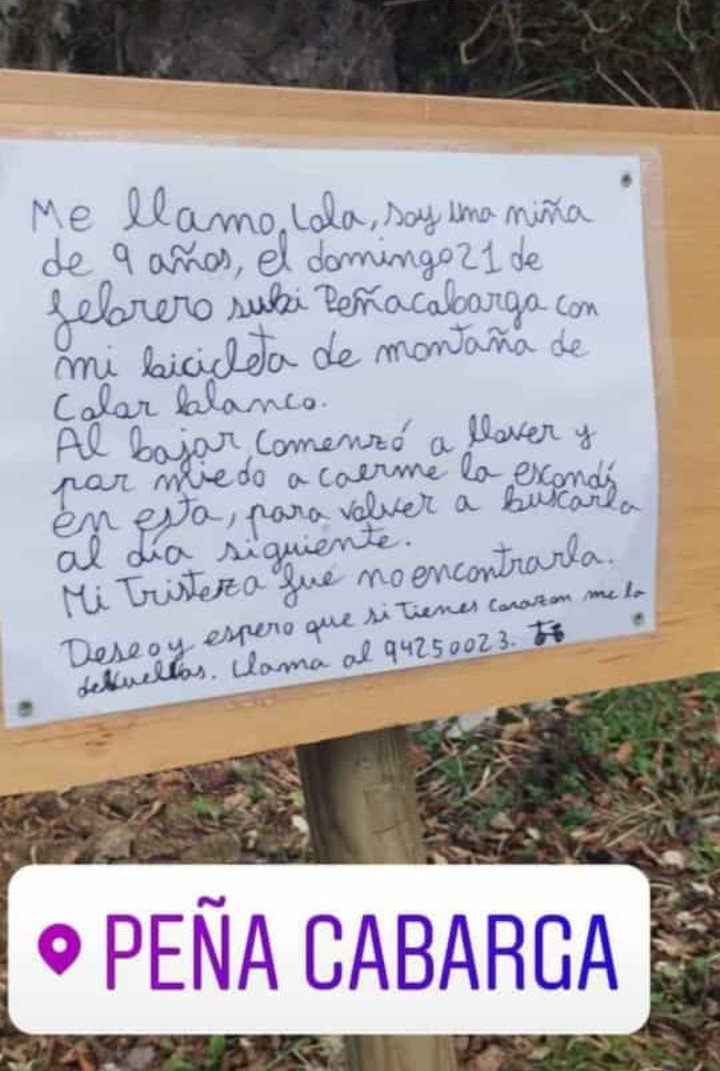 Me llamo Lola, soy una niña
de 9 años, el domingo 21 de
febrero subi Peñacabarga con
mi bicicleta de montaña de
Color blanco.
Al bajar, comenzó a llover y
por miedo a caerme la escondí
en esta, para volver a buscarla
al día siguiente.
Mi Tristeza fué no encontrarla.
Deseo y espero que si Tienes Corazon me la
devuelvas. Llama al 94250023.
PEÑA CABARGA